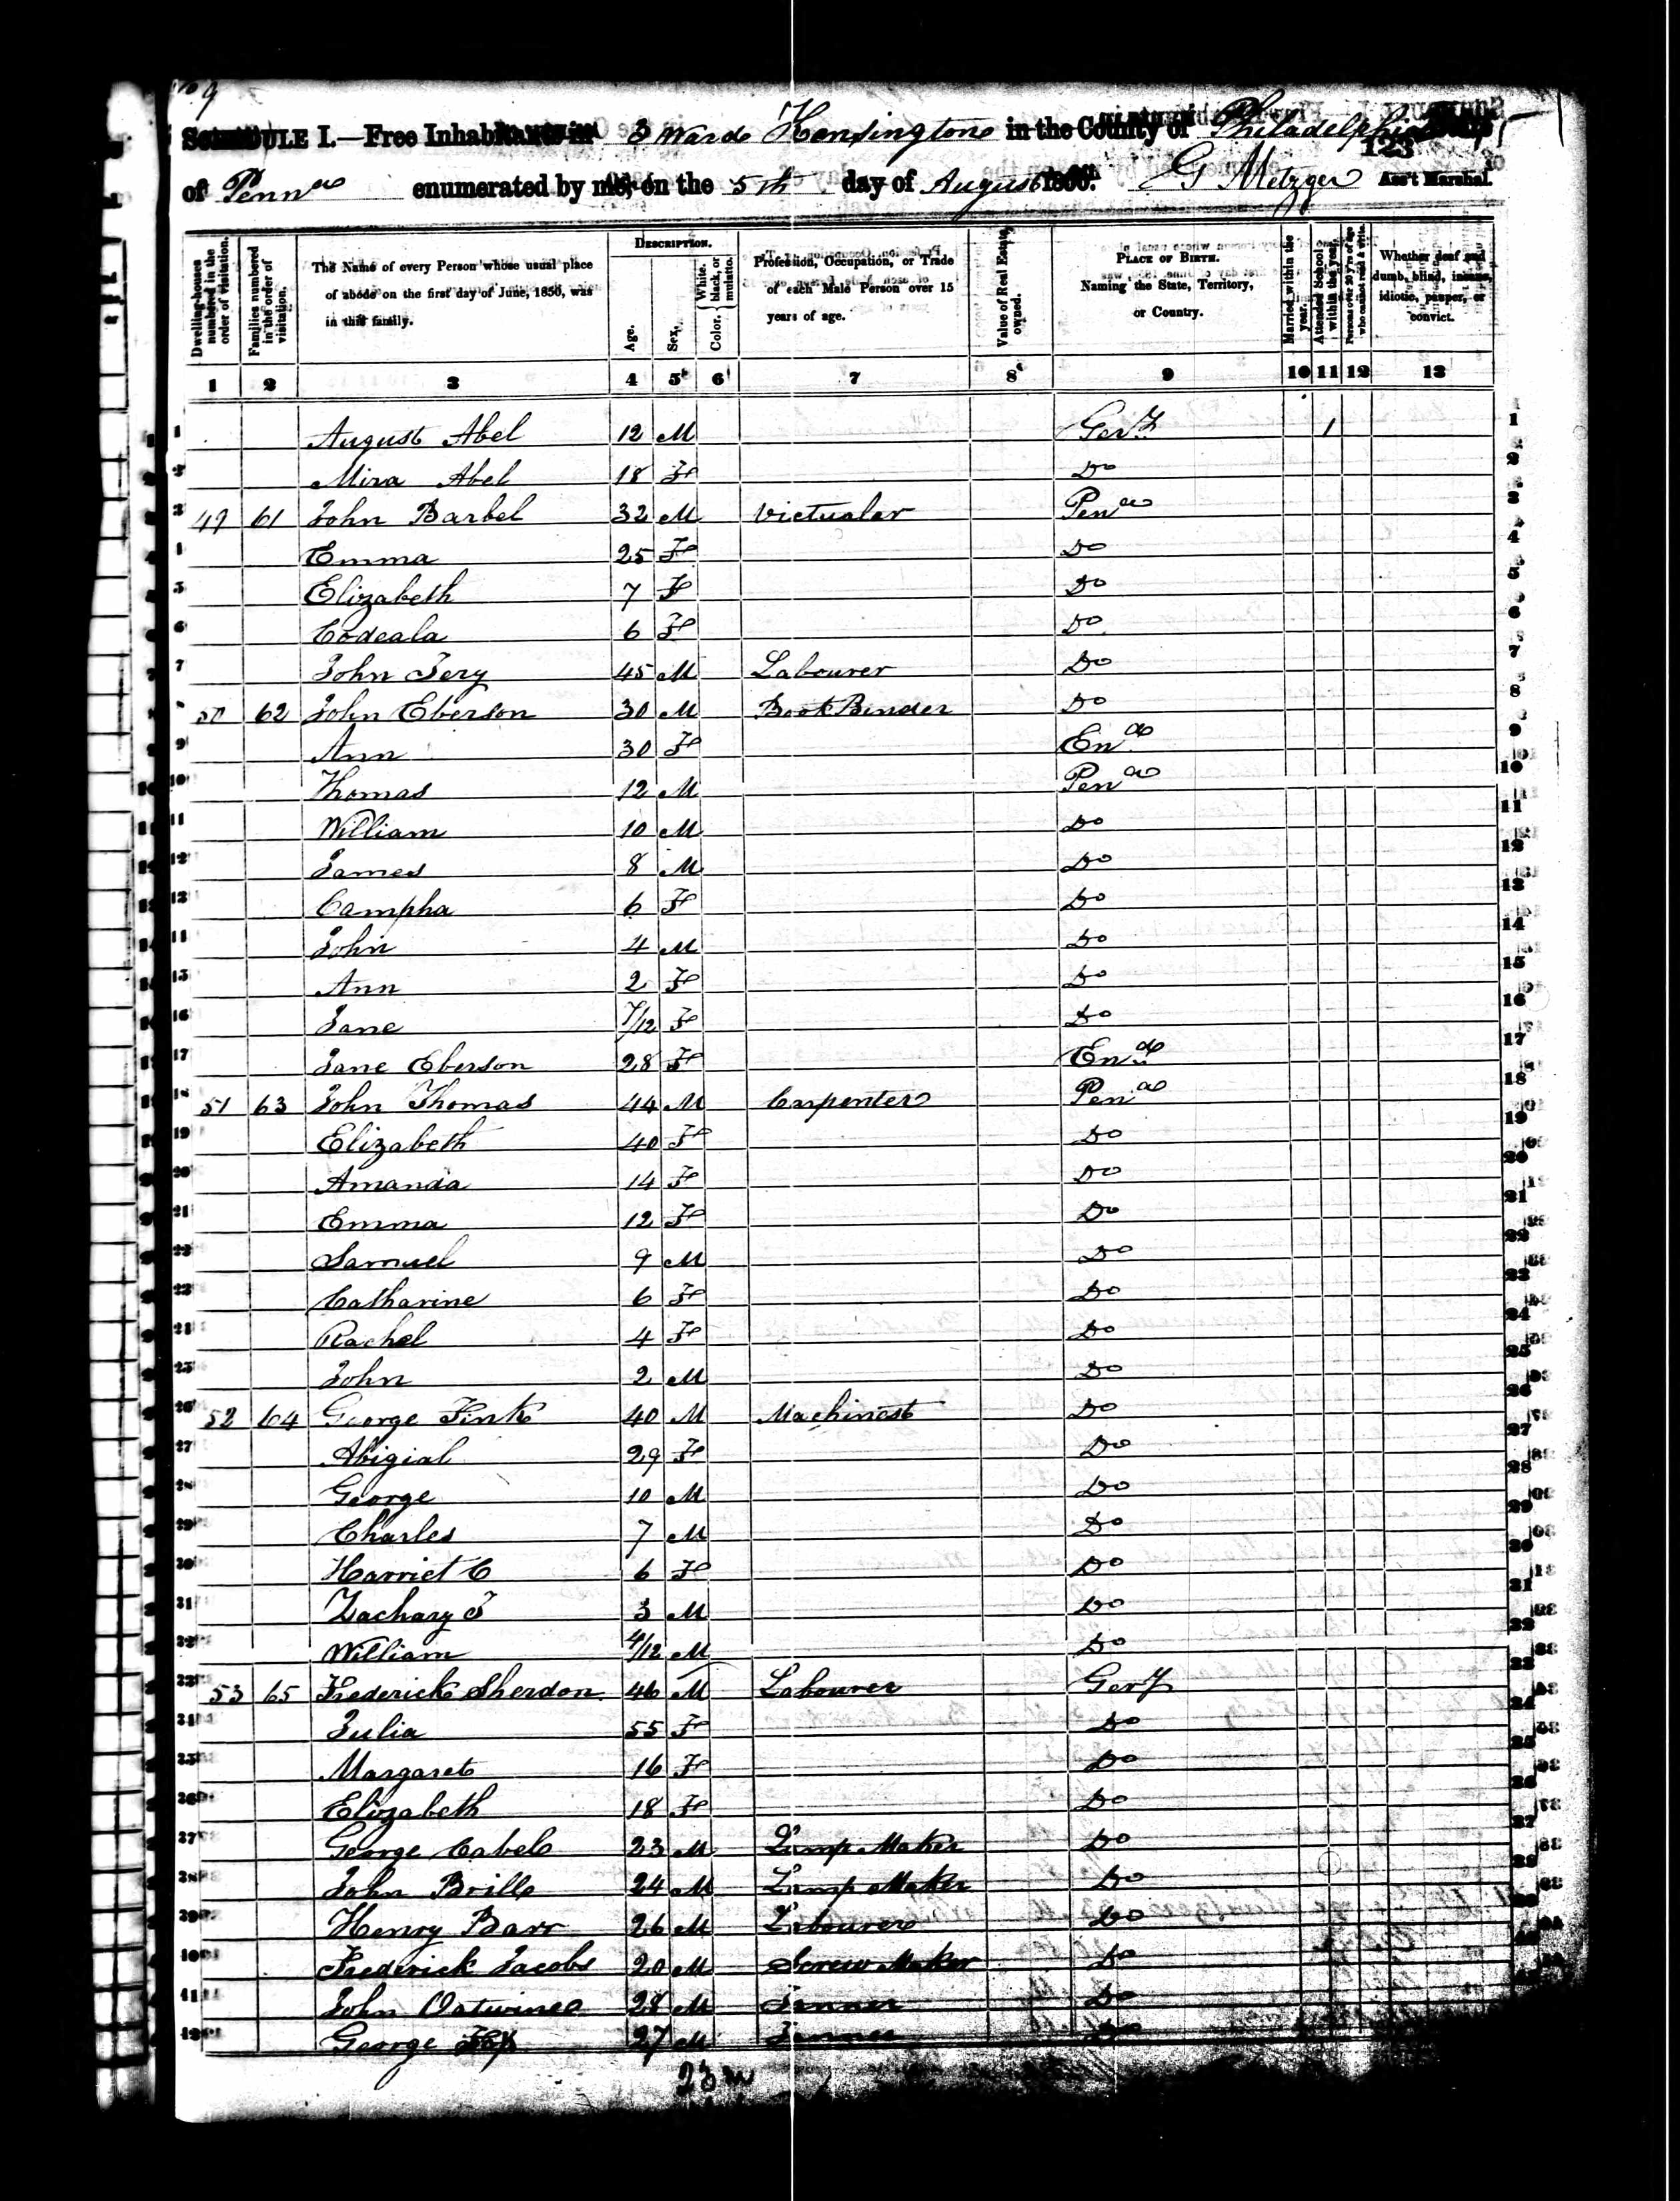 9
SCHEDULE I.—Free Inhabitants in 3 Ward Kensington in the County of Philadelphia State
123
of Penna enumerated by me, on the 5th day of August 1850. G Metzger Ass't Marshal.
Dwelling-houses numbered in the order of visitation. Families numbered in the order of visitation. The Name of every Person whose usual place of abode on the first day of June, 1850, was in this family. DESCRIPTION. Age. Sex. Color. White, black, or mulatto. Profession, Occupation, or Trade of each Male Person over 15 years of age. Value of Real Estate owned. PLACE OF BIRTH. Naming the State, Territory, or Country. Married within the year. Attended School within the year. Persons over 20 y'rs of age who cannot read & write. Whether deaf and dumb, blind, insane, idiotic, pauper, or convict.
1 2 3 4 5 6 7 8 9 10 11 12 13
1 August Abel 12 M Gery 1 1
2 Mira Abel 18 F Do 2
3 49 61 John Barbel 32 M Victualar Pena 3
4 Emma 25 F Do 4
5 Elizabeth 7 F Do 5
6 Codeala 6 F Do 6
7 John Jery 45 M Labourer Do 7
50 62 John Eberson 30 M Book Binder Do 8
9 Ann 30 F End 9
10 Thomas 12 M Pena 10
11 William 10 M Do 11
12 James 8 M Do 12
13 Campha 6 F Do 13
14 John 4 M Do 14
15 Ann 2 F Do 15
16 Jane 7/12 F Do 16
17 Jane Eberson 28 F End 17
18 51 63 John Thomas 44 M Carpenter Pena 18
19 Elizabeth 40 F Do 19
20 Amanda 14 F Do 20
21 Emma 12 F Do 21
22 Samuel 9 M Do 22
23 Catharine 6 F Do 23
24 Rachel 4 F Do 24
25 John 2 M Do 25
26 52 64 George Fink 40 M Machinest Do 26
27 Abigial 29 F Do 27
28 George 10 M Do 28
29 Charles 7 M Do 29
30 Harriet C 6 F Do 30
31 Zachary T 3 M Do 31
32 William 4/12 M Do 32
33 53 65 Frederick Sherdon 46 M Labourer Gery 33
34 Julia 55 F Do 34
35 Margaret 16 F Do 35
36 Elizabeth 18 F Do 36
37 George Cabel 23 M Lamp Maker Do 37
38 John Brill 24 M Lamp Maker Do 38
39 Henry Barr 26 M Labourer Do 39
40 Frederick Jacobs 20 M Screw Maker Do
41 John Oatwine 28 M Do
42 George 27 M Do
23 m